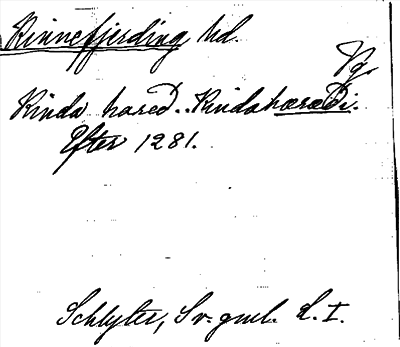 Kinnefjerding hd.
Vg.
Kinda hæred. Kindahæræði.
Efter 1281.
Schlyter, Sv. gml. L. I.